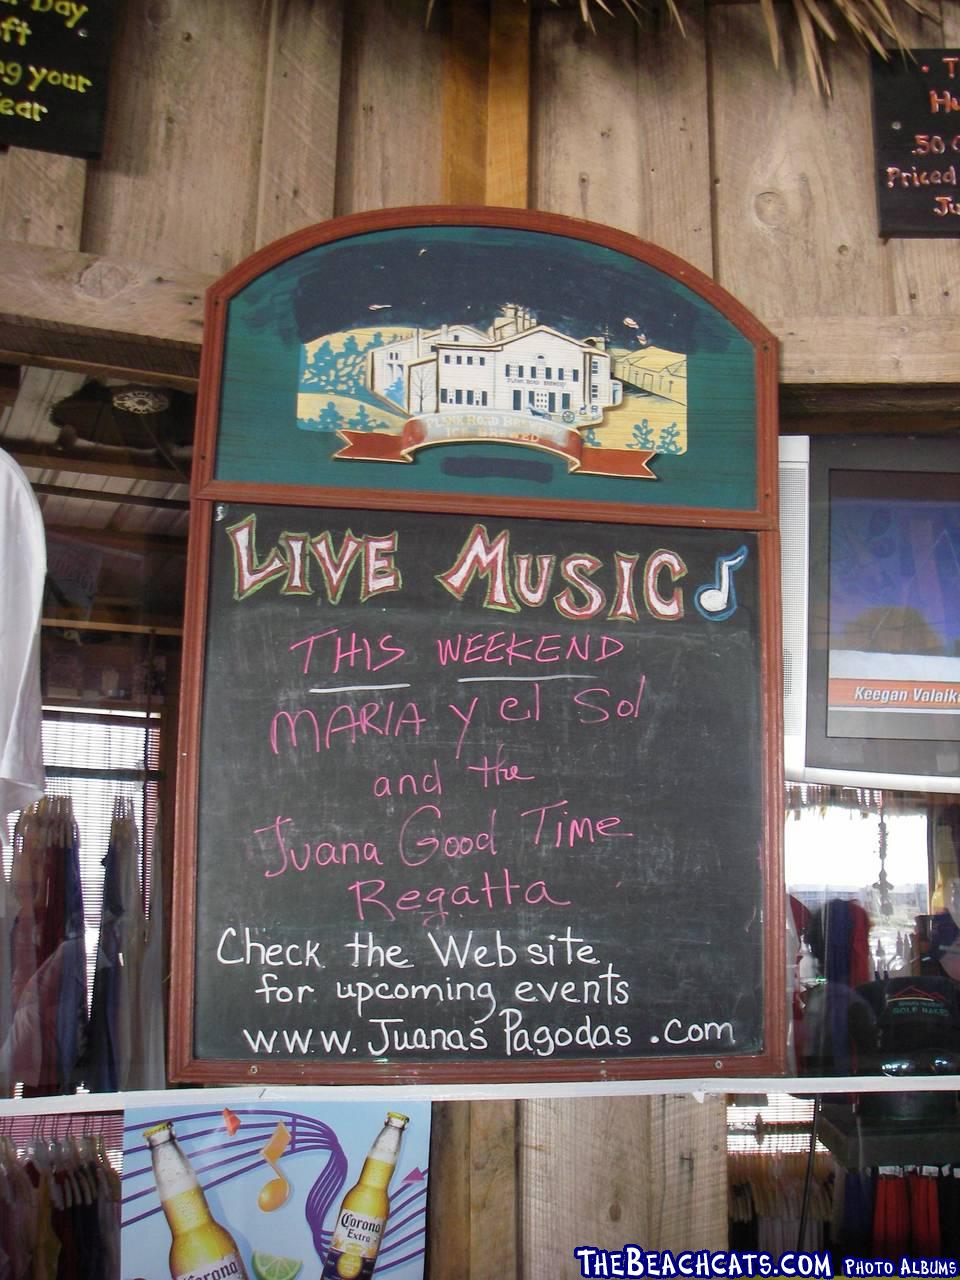 Day
ft
ng your
ear
T
Hu
.50
Priced
Ju
PLANK ROAD BREWERY
PLANK ROAD BREWERY
ICE BREWED
LIVE MUSIC
THIS WEEKEND
MARIA y el Sol
and the
Juana Good Time
Regatta
Check the Web site
for upcoming events
www.JuanasPagodas.com
Keegan Valaik
GOLF NAKED
Corona
Extra
Corona
THEBEACHCATS.COM PHOTO ALBUMS